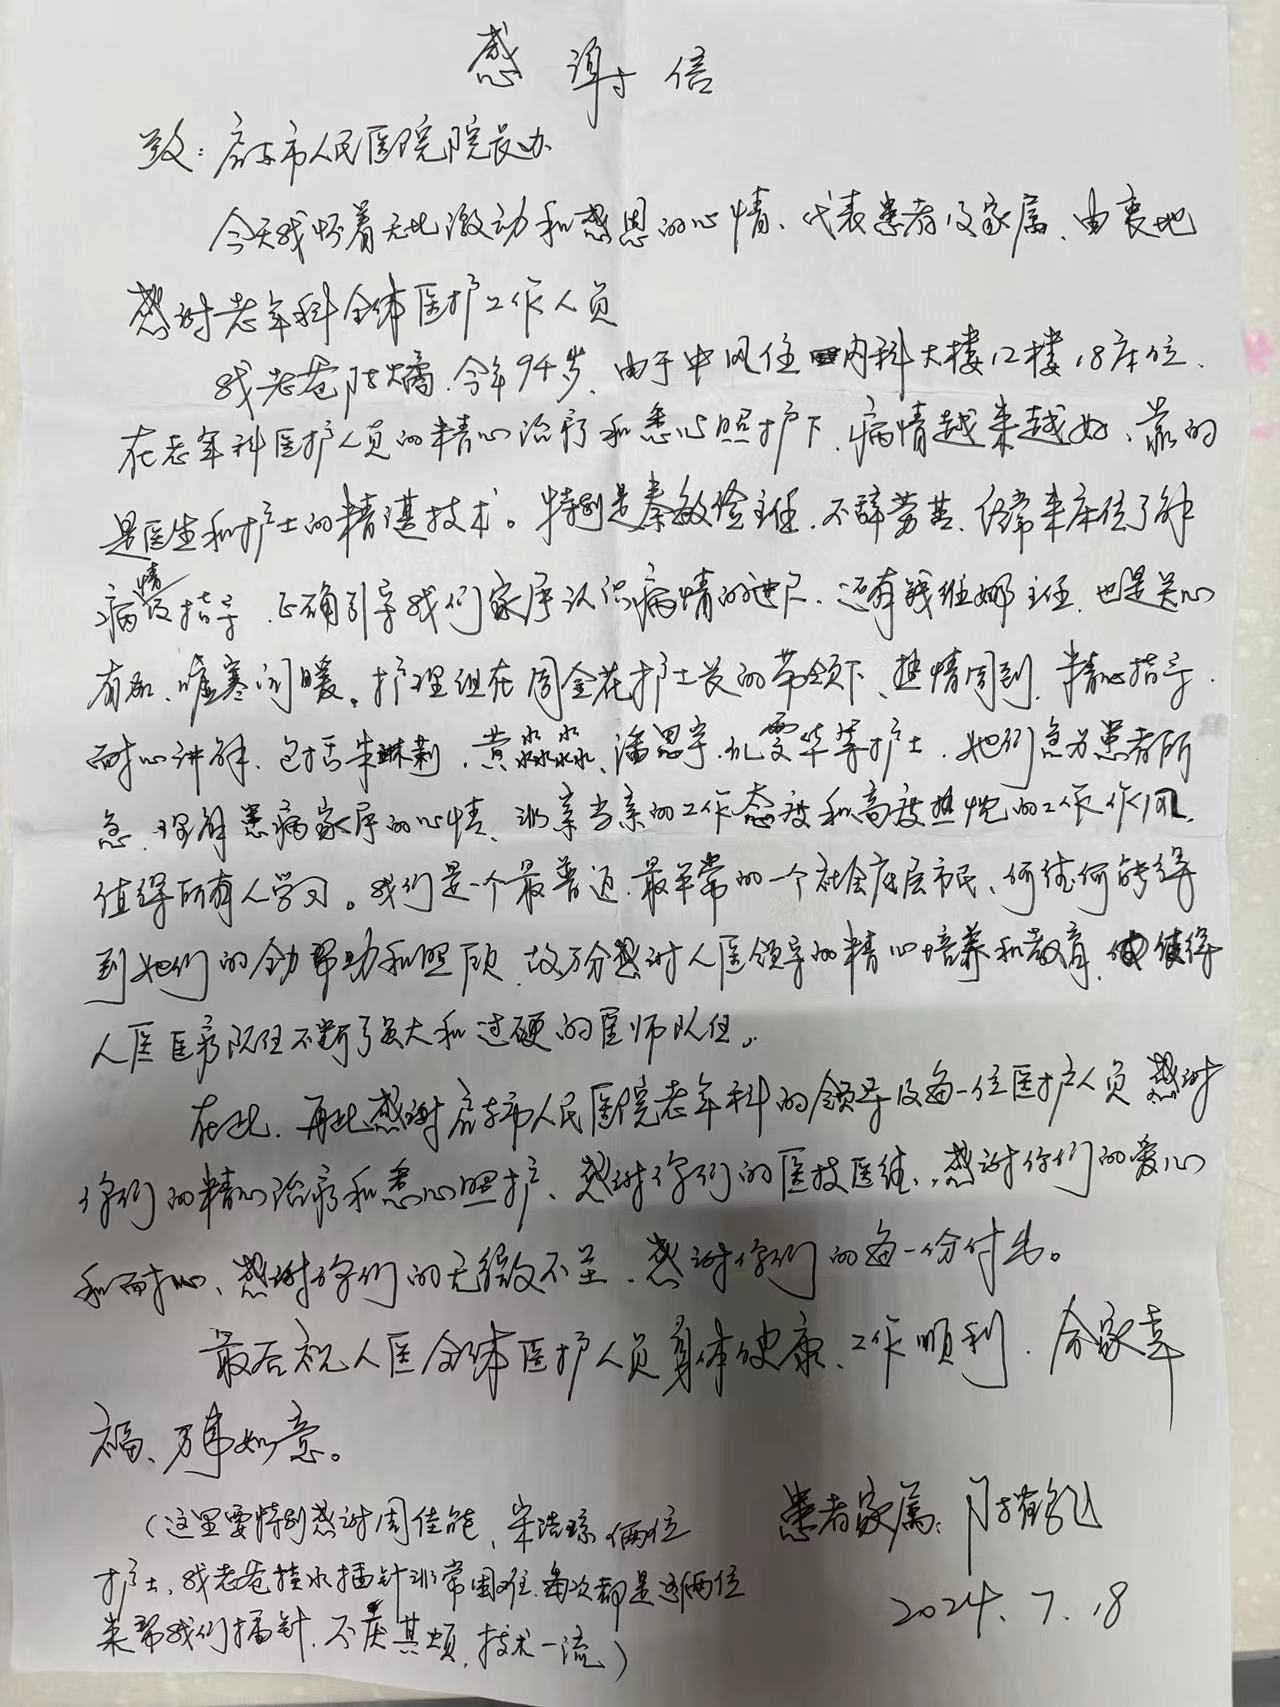 感谢信
致：启东市人民医院院长办
今天我怀着无比激动和感恩的心情、代表患者及家属、由衷地
感谢老年科全体医护工作人员
我老爸陆燏.今年94岁、由于中风住内科大楼12楼18床位.
在老年科医护人员的精心治疗和悉心照护下、病情越来越好、靠的
是医生和护士的精湛技术。特别是秦敏俭主任.不辞劳苦、经常来床位了解
病情及指导.正确引导我们家属认识病情的进展、还有钱继娜主任.也是关心
有加、嘘寒问暖。护理组在周金花护士长的带领下、热情周到.精心指导.
耐心讲解、包括朱琳莉.黄淼淼、潘思宇.孔雯华等护士.她们急为患者所
急.理解患病家属的心情、非亲当亲的工作态度和高度热忱的工作作风.
值得所有人学习。我们是一个最普通.最平常的一个社会底层市民、何德何能得
到她们的全力帮助和照顾.故万分感谢人医领导的精心培养和教育.使得
人医医疗队伍不断了强大和过硬的医师队伍。
在此.再此感谢启东市人民医院老年科的领导及每一位医护人员 感谢
你们的精心治疗和悉心照护、感谢你们的医技医德、感谢你们的爱心
和耐心、感谢你们的无微不至、感谢你们的每一份付出。
最后祝人医全体医护人员身体健康、工作顺利.合家幸
福、万事如意。
（这里要特别感谢周佳能、宋浩琼俩位
护士、我老爸挂水插针非常困难.每次都是这俩位
来帮我们插针.不厌其烦.技术一流）
患者家属：
2024.7.18